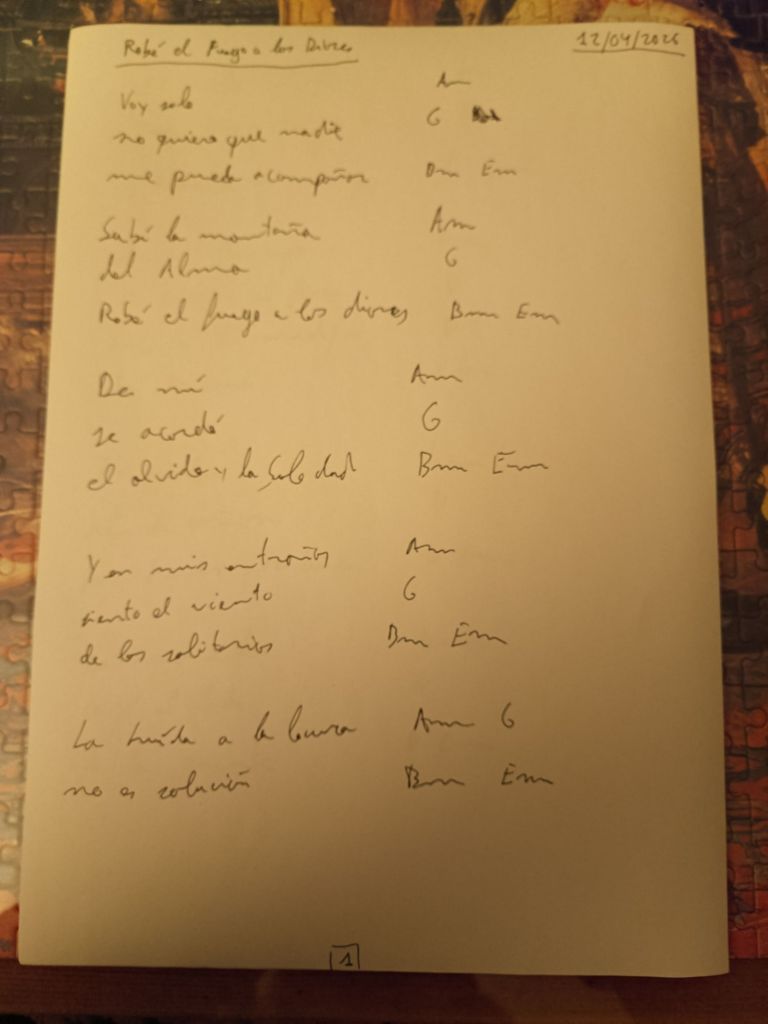 Robé el Fuego a los Dioses 12/04/2026
Voy solo Am
no quiero que nadie G
me pueda acompañar Bm Em
Subí la montaña Am
del Alma G
Robé el fuego a los dioses Bm Em
De mí Am
se acordó G
el olvido y la Soledad Bm Em
Y en mis entrañas Am
siento el viento G
de los solitarios Bm Em
La huída a la locura Am G
no es solución Bm Em
1